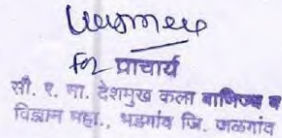 for प्राचार्य
सौ. र. ना. देशमुख कला वाणिज्य व
विज्ञान महा., भडगांव जि. जळगांव